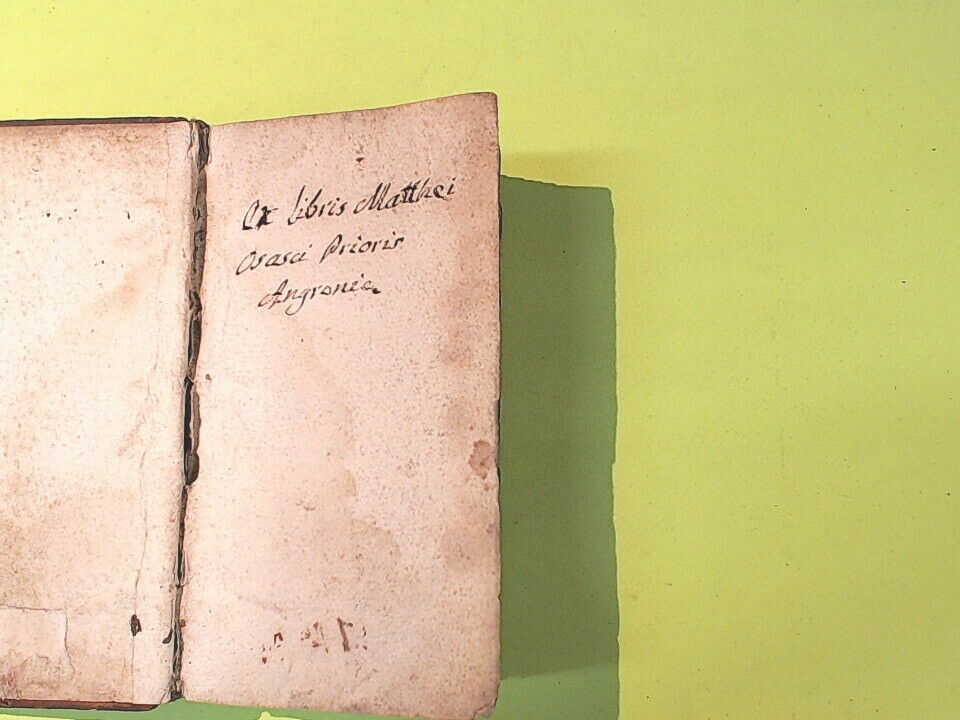 Ex libris Matthei
Osasci Prioris
Angroniæ.